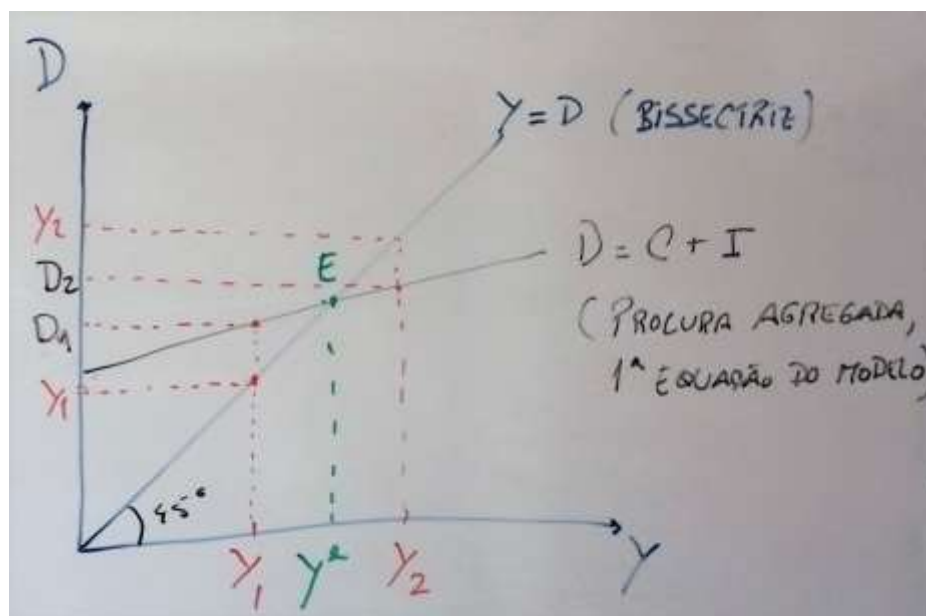 D
Y = D (BISSECTRIZ)
Y2
D2
D1
Y1
E
D = C + I
(PROCURA AGREGADA,
1ª EQUAÇÃO DO MODELO)
45°
Y1
Y*
Y2
Y